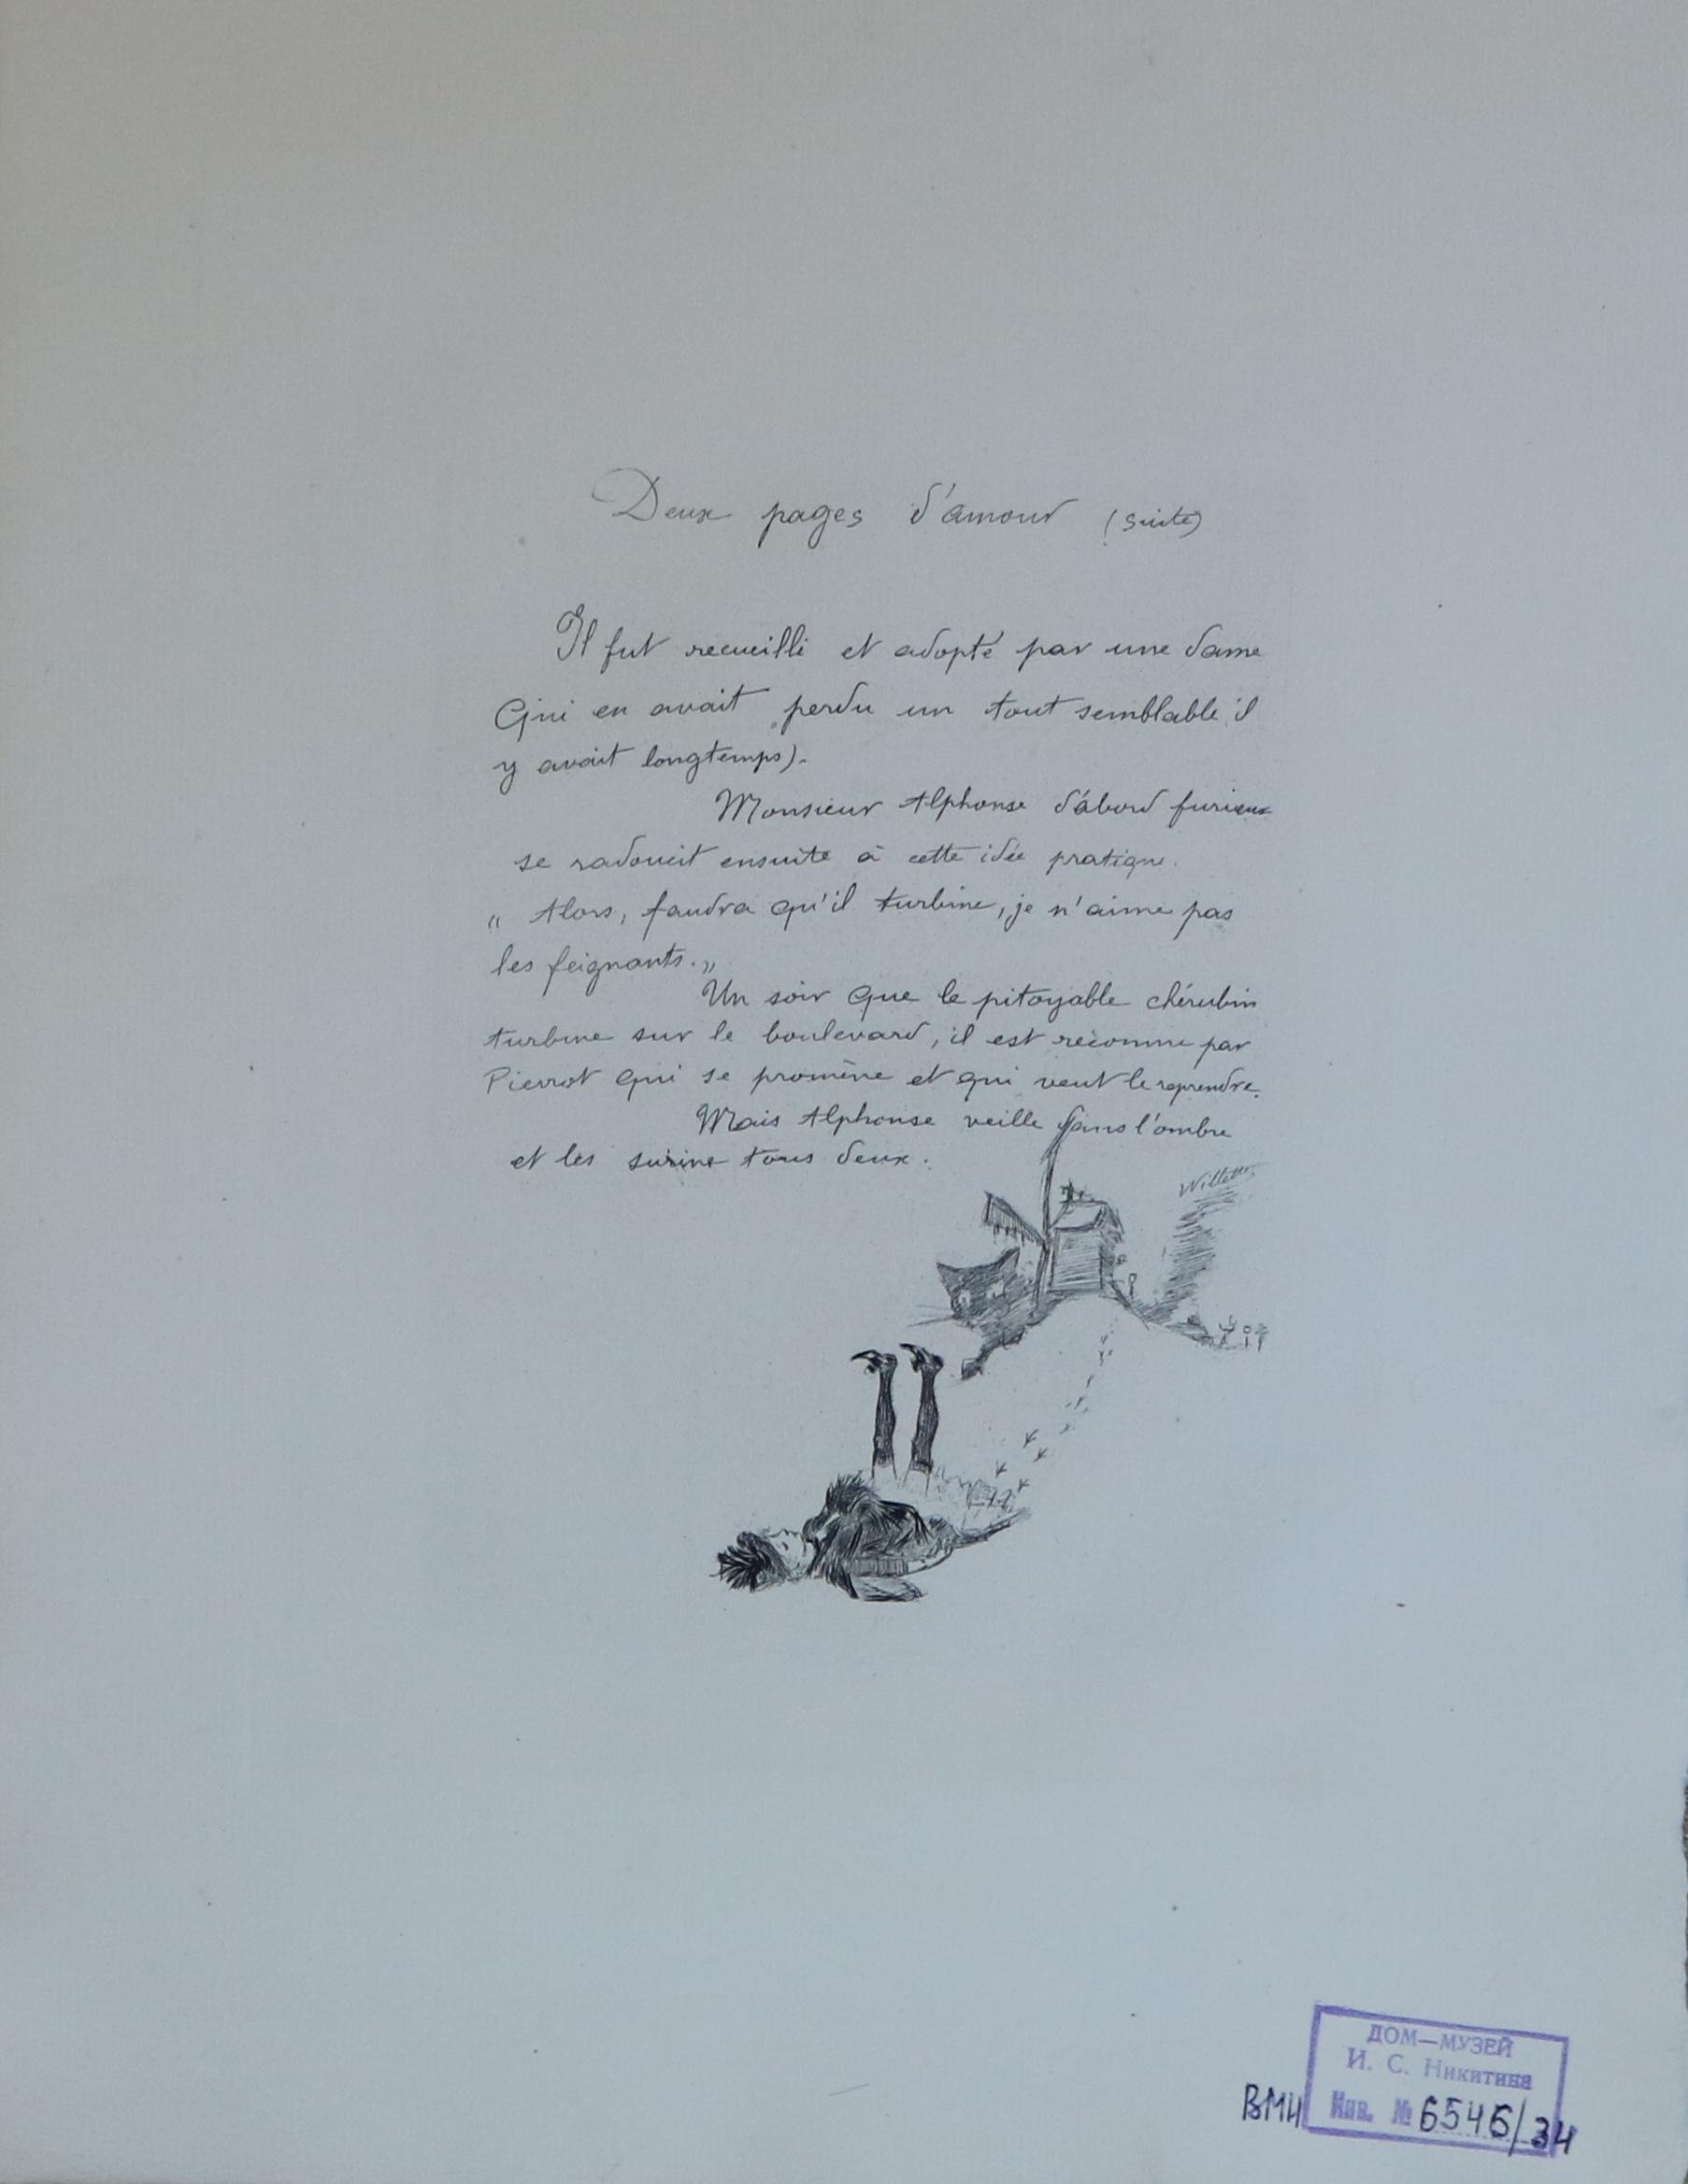 Deux pages d'amour (suite)
Il fut recueilli et adopté par une dame
(qui en avait perdu un tout semblable il
y avait longtemps).
Monsieur Alphonse d'abord furieux
se radoucit ensuite à cette idée pratique.
„ Alors, faudra qu'il turbine, je n'aime pas
les feignants. „
Un soir que le pitoyable chérubin
turbine sur le boulevard, il est reconnu par
Pierrot qui se promène et qui veut le reprendre.
Mais Alphonse veille dans l'ombre
et les surine tous deux.
Willette
ДОМ—МУЗЕЙ
И. С. Никитина
ВМН Инв. № 6546/34